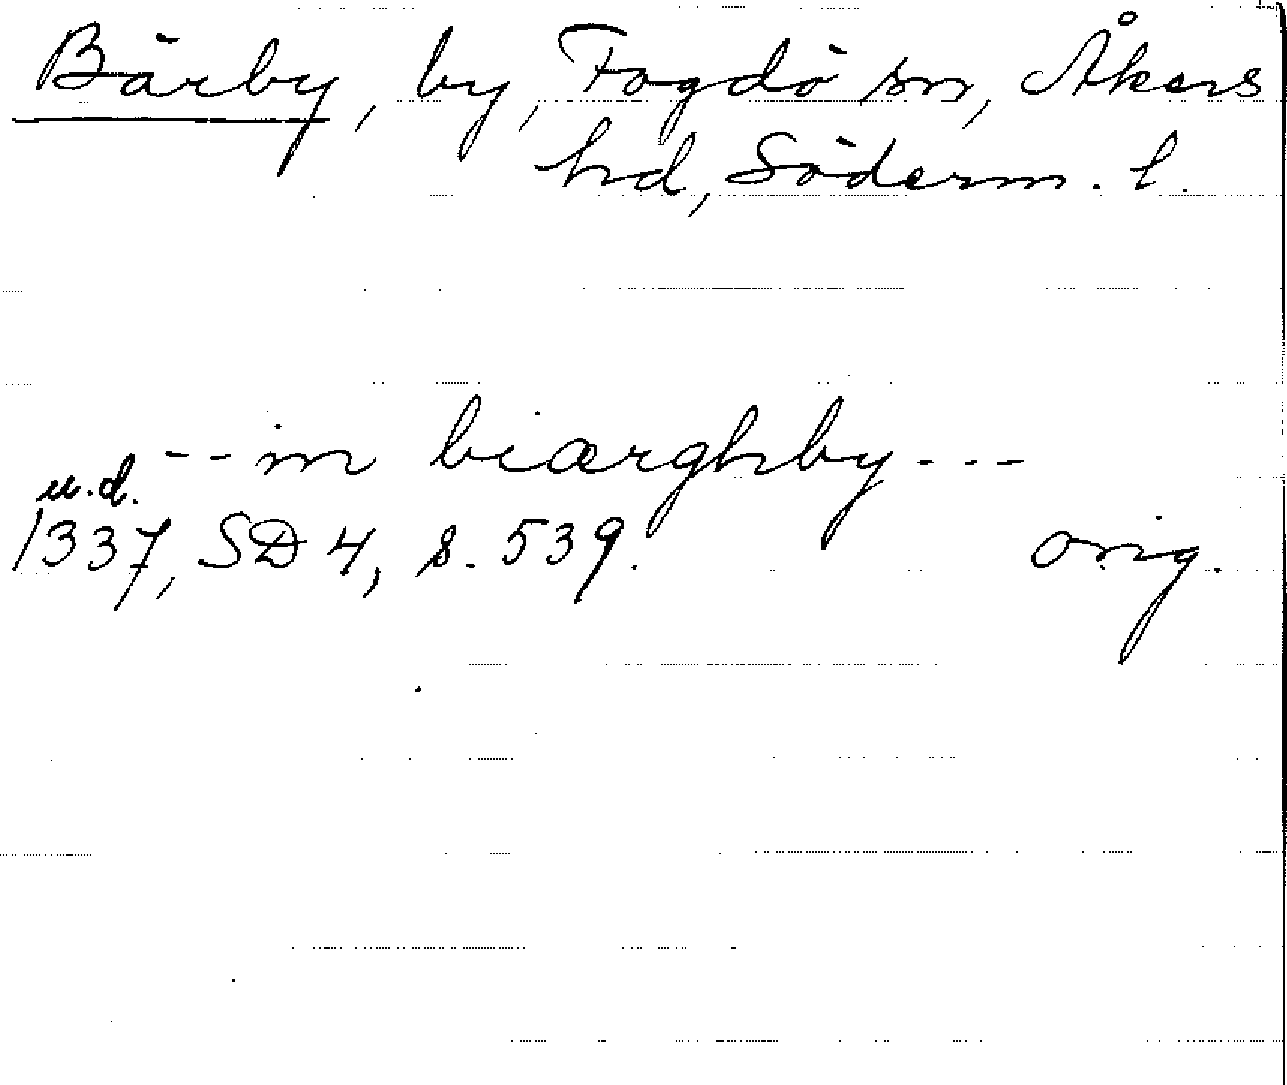 Bärby, by, Fogdö sn, Åkers
hd, Söderm. l.
-- in biærghby ---
u.d.
1337, SD 4, s. 539. orig.